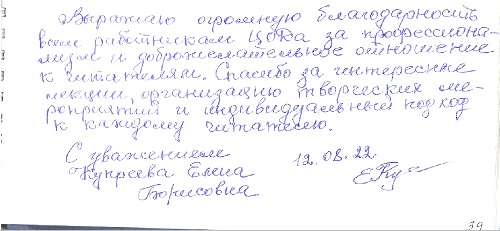 Выражаю огромную благодарность
всем работникам ЦОДа за профессиона-
лизм и доброжелательное отношение
к читателям. Спасибо за интересные
лекции, организацию творческих ме-
роприятий и индивидуальный подход
к каждому читателю.
С уважением
Купреева Елена
Борисовна
12.08.22
39